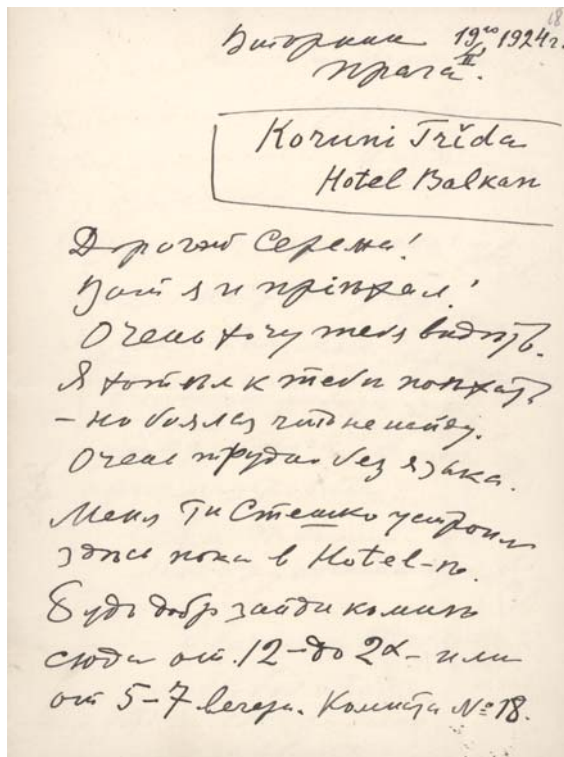 18
Вторник 19го/II 1924 г.
Прага.
Koruni Třída
Hotel Balkan
Дорогой Сережа!
Вот я и пріѣхал!
Очень хочу тебя видѣть.
Я хотѣл к тебѣ поѣхать
– но боялся что не найду.
Очень трудно без языка.
Меня Стешко устроил
здѣсь пока в Hotel-ѣ.
Будь добр зайди ко мнѣ
сюда от 12–до 2х– или
от 5–7 вечера. Комната №18.